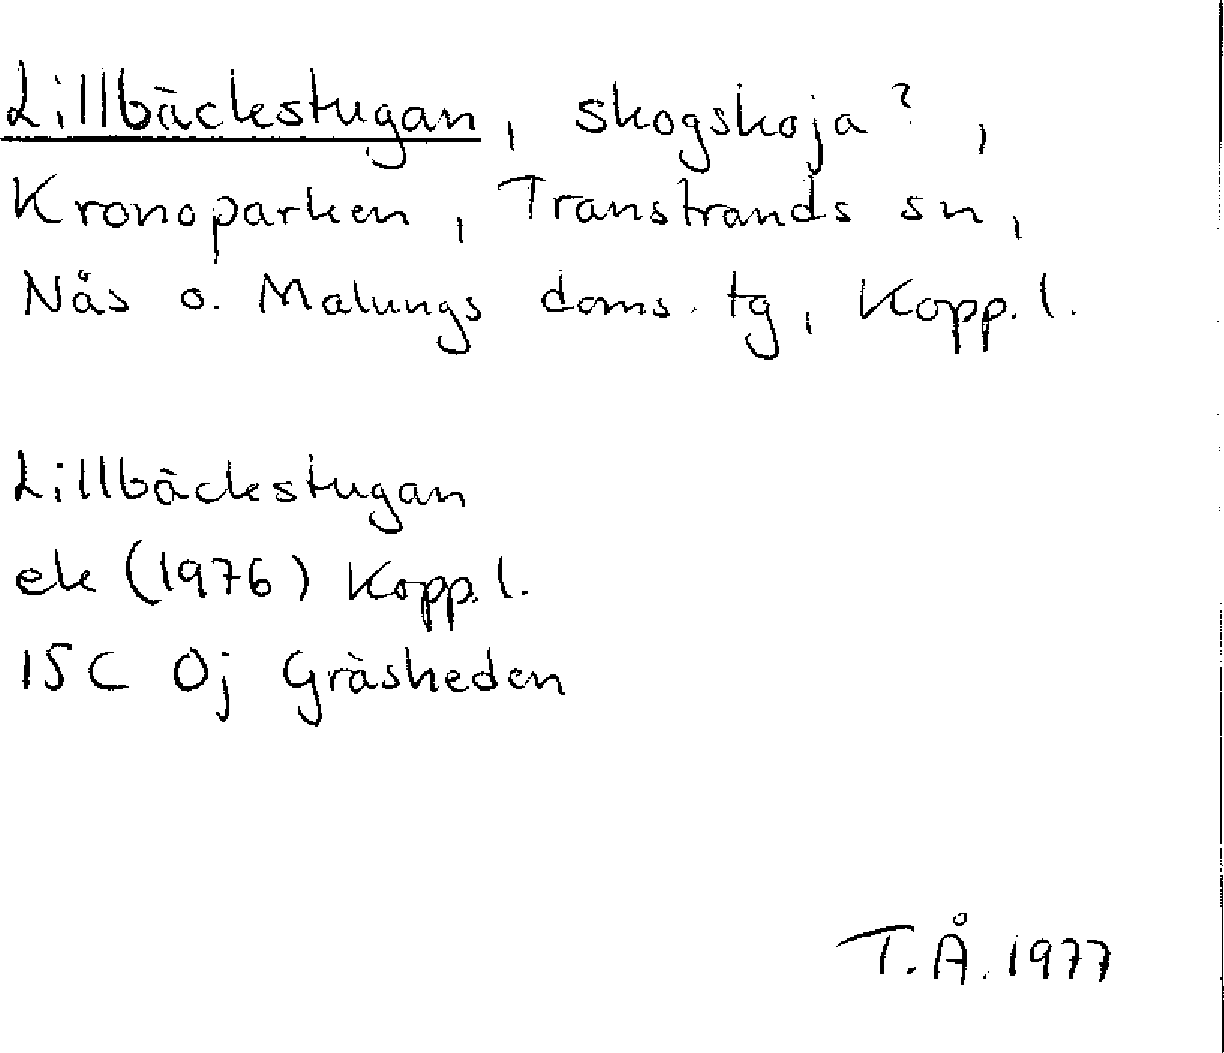 Lillbäckstugan, skogskoja?,
Kronoparken, Transtrands sn,
Nås o. Malungs doms. tg, Kopp. l.
Lillbäckstugan
ek (1976) Kopp. l.
15C 0j Gräsheden
T.Å. 1977